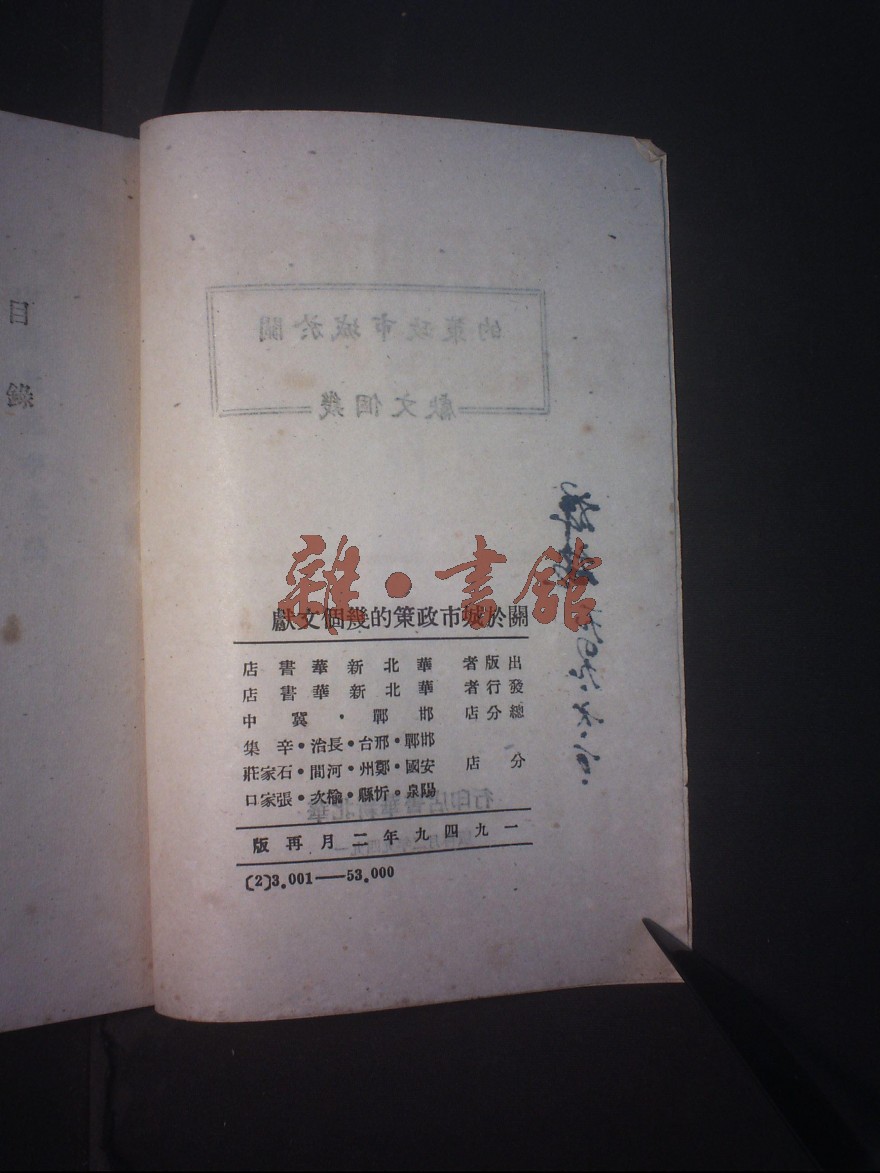 目錄
關於城市政策的
幾個文獻
雜•書館
關於城市政策的幾個文獻
出版者 華北新華書店
發行者 華北新華書店
總分店 邯鄲•冀中
邯鄲•邢台•長治•辛集
分店 安國•鄭州•河間•石家莊
陽泉•忻縣•榆次•張家口
一九四九年二月再版
(2)3.001——53.000
華北新華書店印行